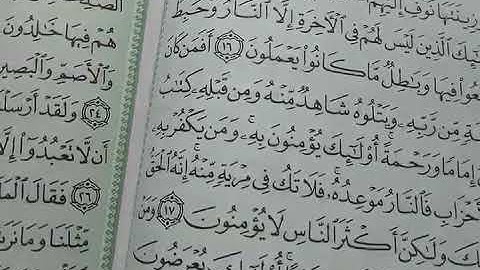 زِينَتَهَا نُوَفِّ إِلَيْهِمْ
ـئِكَ ٱلَّذِينَ لَيْسَ لَهُمْ فِى ٱلْأَخِرَةِ إِلَّا ٱلنَّارُ وَحَبِطَ
ـعُوا۟ فِيهَا وَبَٰطِلٌ مَّا كَانُوا۟ يَعْمَلُونَ ١٦ أَفَمَن كَانَ
ـنَةٍ مِّن رَّبِّهِۦ وَيَتْلُوهُ شَاهِدٌ مِّنْهُ وَمِن قَبْلِهِۦ كِتَٰبُ
إِمَامًا وَرَحْمَةً أُو۟لَٰٓئِكَ يُؤْمِنُونَ بِهِۦ وَمَن يَكْفُرْ بِهِۦ
ـأَحْزَابِ فَٱلنَّارُ مَوْعِدُهُۥ فَلَا تَكُ فِى مِرْيَةٍ مِّنْهُ إِنَّهُ ٱلْحَقُّ
ـكَ وَلَٰكِنَّ أَكْثَرَ ٱلنَّاسِ لَا يُؤْمِنُونَ ١٧ وَمَنْ
أُو۟لَٰٓئِكَ يُعْرَضُونَ
هُمْ فِيهَا خَٰلِدُونَ
وَٱلْأَصَمِّ وَٱلْبَصِيرِ
٢٤ وَلَقَدْ أَرْسَلْـ
أَن لَّا تَعْبُدُوٓا۟ إِلَّا
٢٦ فَقَالَ ٱلْمَلَـ
مِّثْلَنَا وَمَا نَرَىٰ